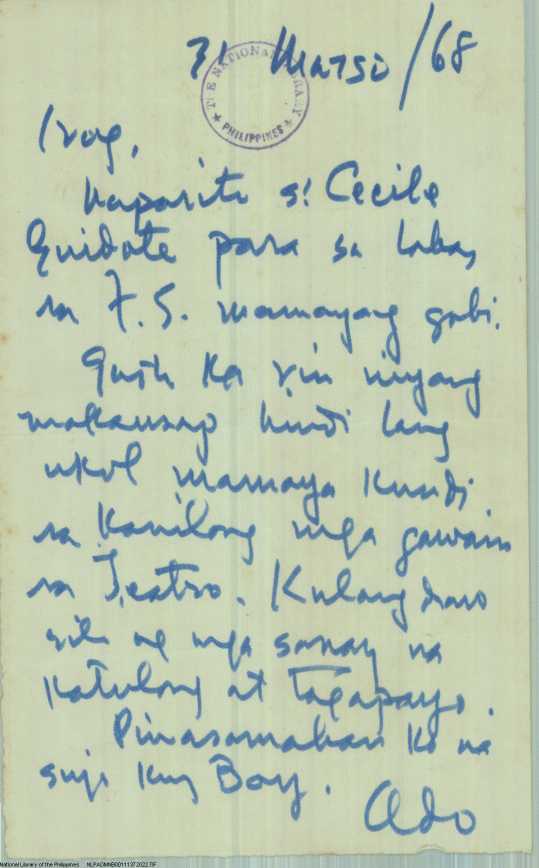 31 Marso/68
THE NATIONAL LIBRARY
PHILIPPINES
Irog,
Naparito si Cecile
Guidote para sa labas
sa F.S. mamayang gabi.
Gusto ka rin niyang
makausap hindi lang
ukol mamaya kundi
sa kanilang mga gawain
sa Teatro. Kulang daw
sila ng mga sanay na
katulong at tagapayo.
Pinasamahan ko na
siya kay Boy.
Ado
National Library of the Philippines